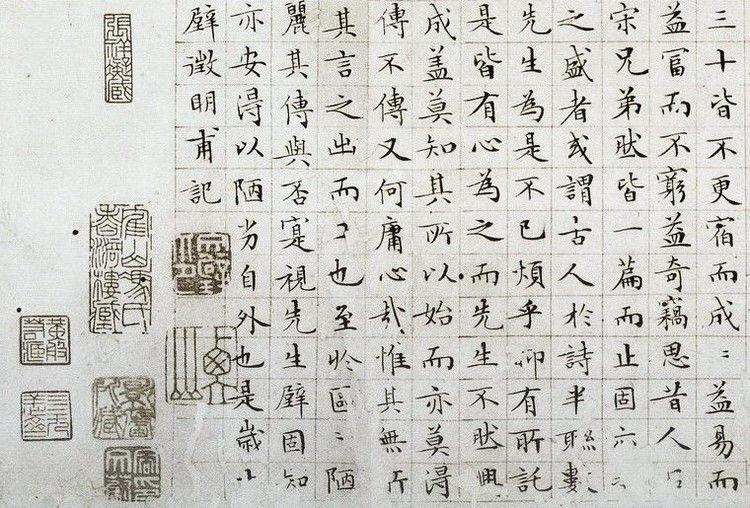 三十皆不更宿而成〻益易而
益富而不窮益奇竊思昔人
宋兄弟然皆一篇而止固六
之盛者或謂古人於詩半聯數
先生為是不已煩乎抑有所託
是皆有心為之而先生不然興
成蓋莫知其所以始而亦莫得
傳不傳又何庸心哉惟其無所
其言之出而〻也至於區〻陋
麗其傳與否寔視先生壁固知
亦安得以陋劣自外也是歲
壁徵明甫記
張祥凝藏